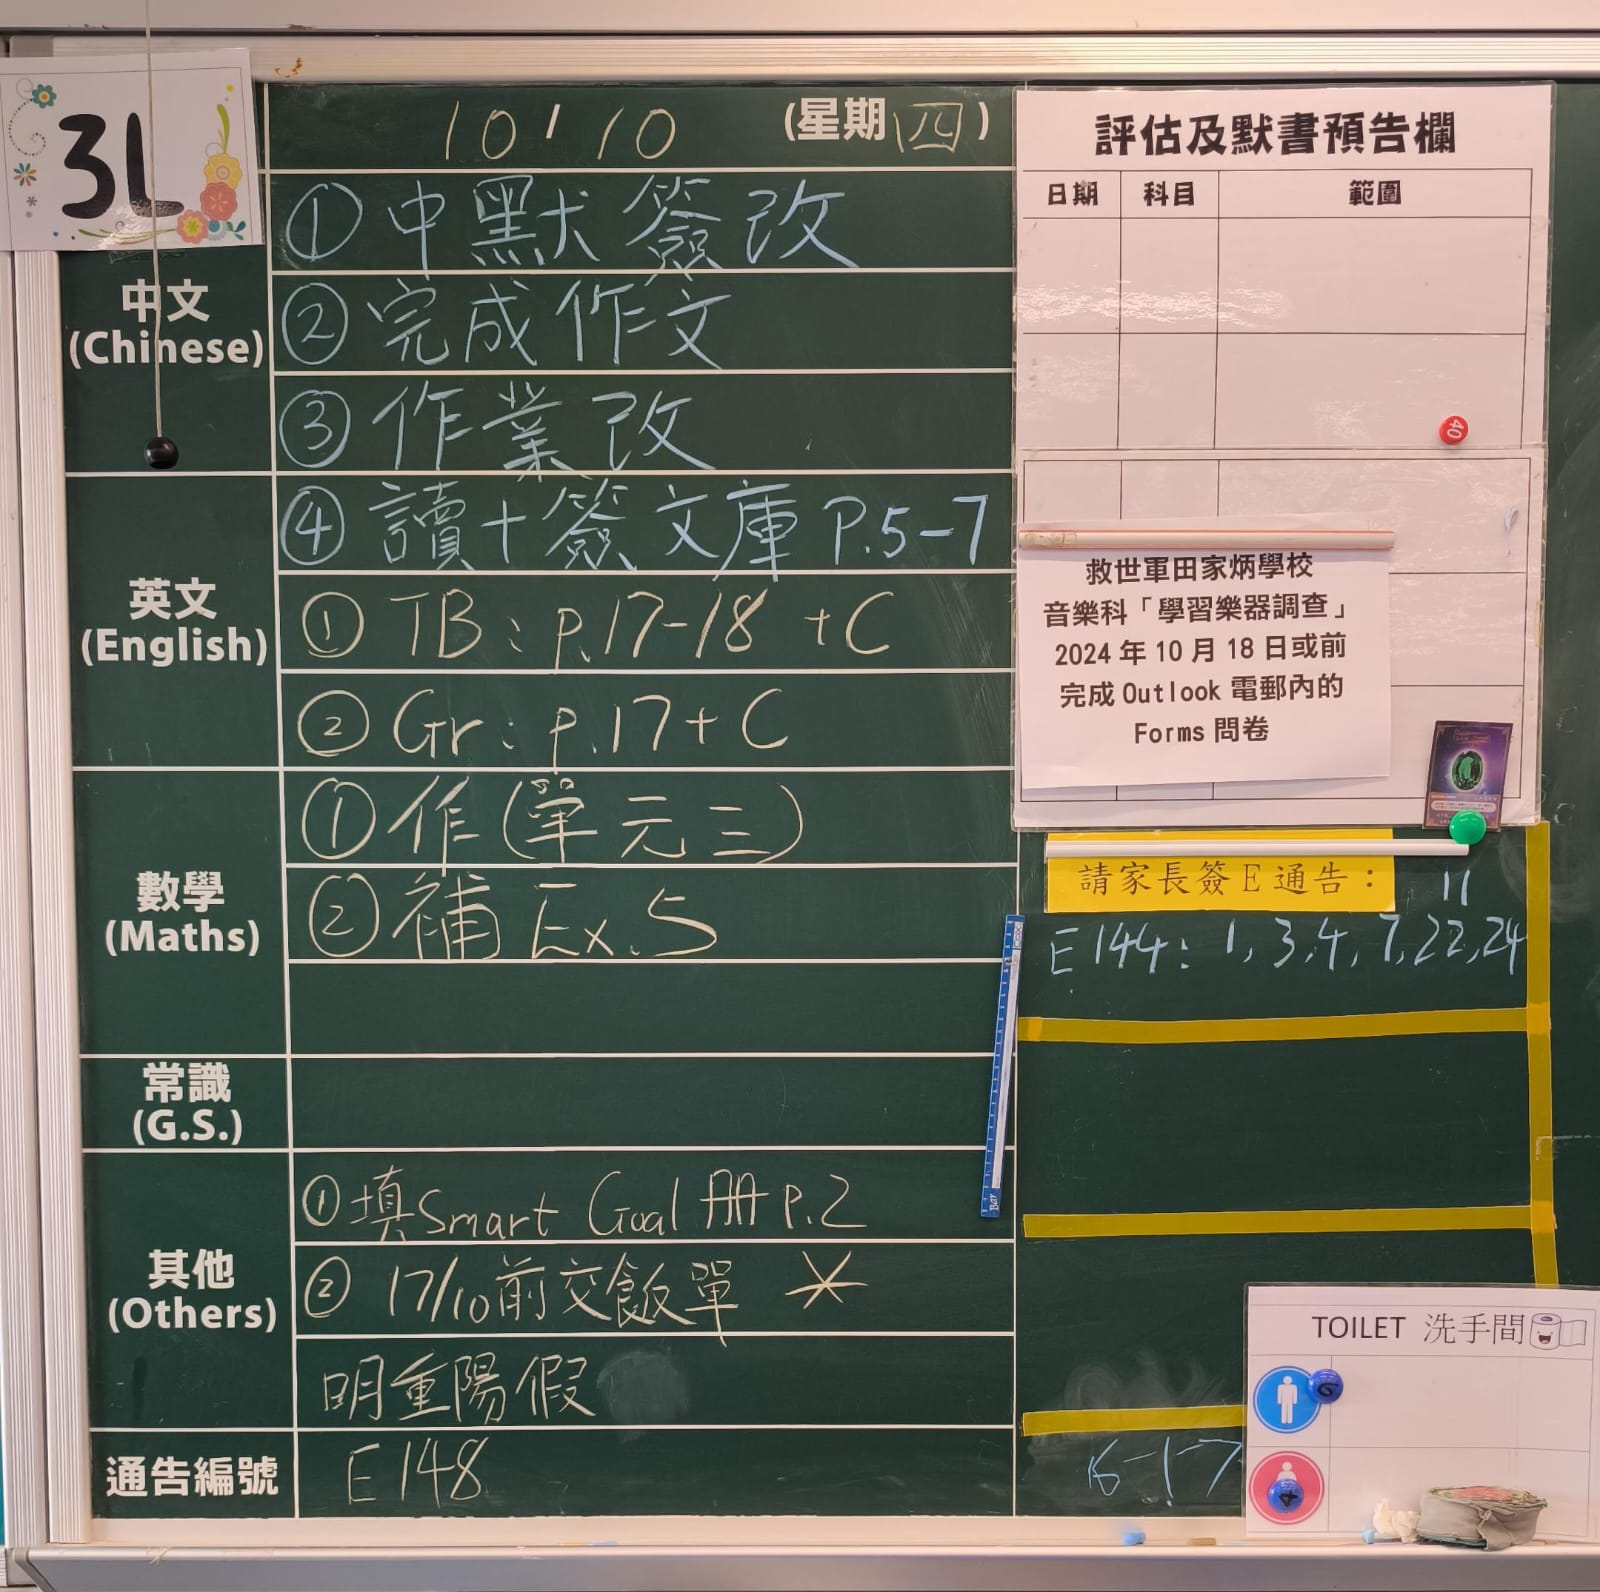 3L
10 / 10 (星期四)
中文
(Chinese)
① 中默簽改
② 完成作文
③ 作業改
英文
(English)
④ 讀+簽文庫 P.5-7
① TB: p.17-18 +C
② Gr: p.17+C
數學
(Maths)
① 作(單元三)
② 補 Ex.5
常識
(G.S.)
其他
(Others)
① 填Smart Goal冊 P.2
② 17/10前交飯單 *
明重陽假
通告編號
E148
評估及默書預告欄
日期 科目 範圍
40
救世軍田家炳學校
音樂科「學習樂器調查」
2024 年 10 月 18 日或前
完成 Outlook 電郵內的
Forms 問卷
請家長簽 E 通告：
11
E144: 1, 3, 4, 7, 22, 24
16-1-7
TOILET 洗手間
4